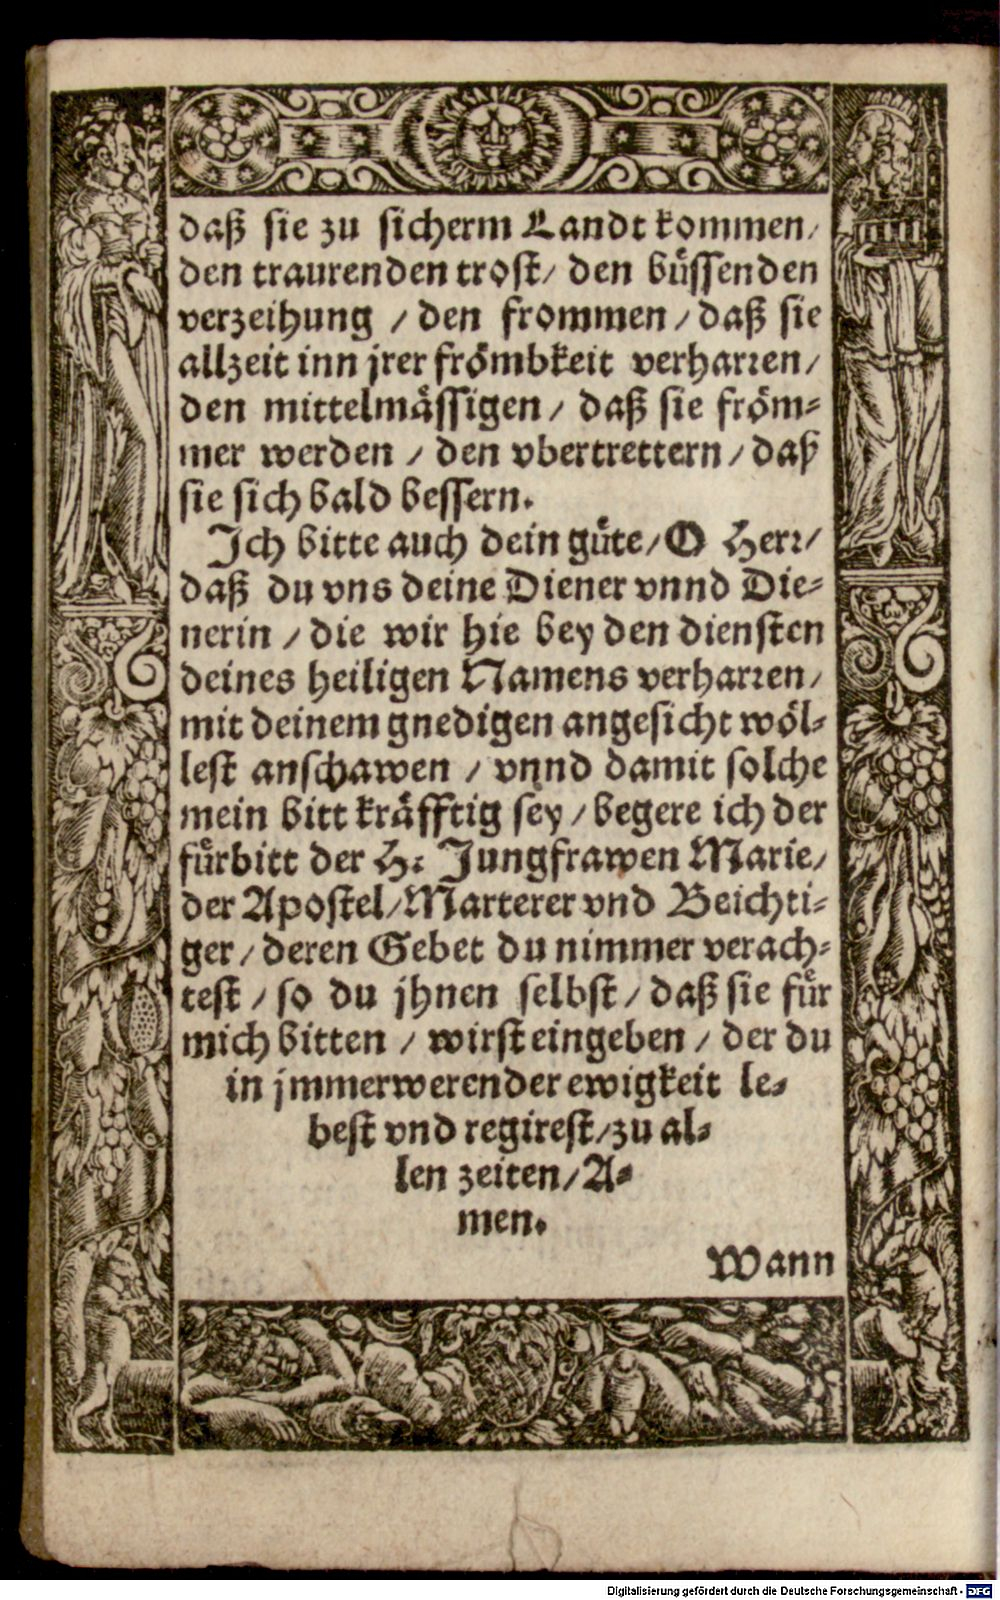 daß sie zu sicherm Landt kommen/
den traurenden trost/ den büssenden
verzeihung / den frommen / daß sie
allzeit inn jrer frömbkeit verharren/
den mittelmässigen / daß sie fröm-
mer werden / den vbertrettern / daß
sie sich bald bessern.
Ich bitte auch dein güte/ O Herr/
daß du vns deine Diener vnnd Die-
nerin / die wir hie bey den diensten
deines heiligen Namens verharren/
mit deinem gnedigen angesicht wöl-
lest anschawen / vnnd damit solche
mein bitt kräfftig sey / begere ich der
fürbitt der H. Jungfrawen Marie/
der Apostel/ Marterer vnd Beichti-
ger / deren Gebet du nimmer verach-
test / so du jhnen selbst / daß sie für
mich bitten / wirst eingeben / der du
in jmmerwerender ewigkeit le-
best vnd regirest/ zu al-
len zeiten/ A-
men.
Wann
Digitalisierung gefördert durch die Deutsche Forschungsgemeinschaft - DFG